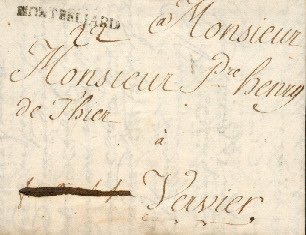 MONTBELIARD
a Monsieur
Monsieur Pre henry
de Thier
à
Vervier